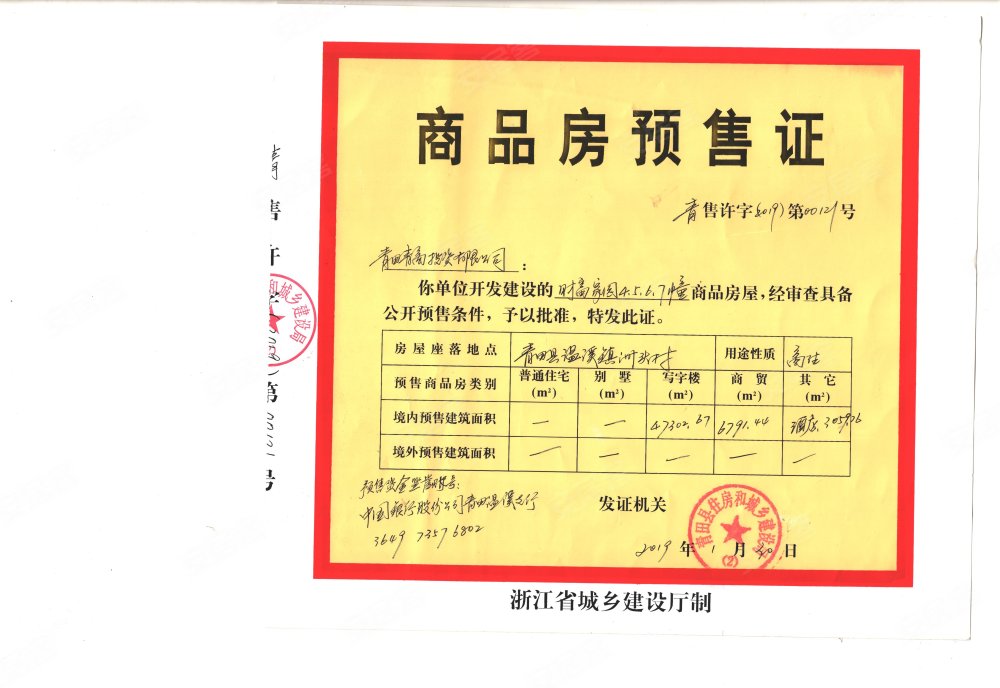 商品房预售证
青售许字(2019)第00121号
青田青商投资有限公司：
你单位开发建设的财富家园4.5.6.7幢商品房屋，经审查具备
公开预售条件，予以批准，特发此证。
房屋座落地点 青田县温溪镇洲头村 用途性质 商住
预售商品房类别 普通住宅(m²) 别墅(m²) 写字楼(m²) 商贸(m²) 其它(m²)
境内预售建筑面积 — — 47302.67 6791.44 酒店
境外预售建筑面积 — — — — —
预售资金监管账号：
中国银行股份公司青田温溪支行
3649 7357 6802
发证机关
青田县住房和城乡建设局
(2)
2019年1月30日
浙江省城乡建设厅制
青售许字 第00121号
和城乡建设局